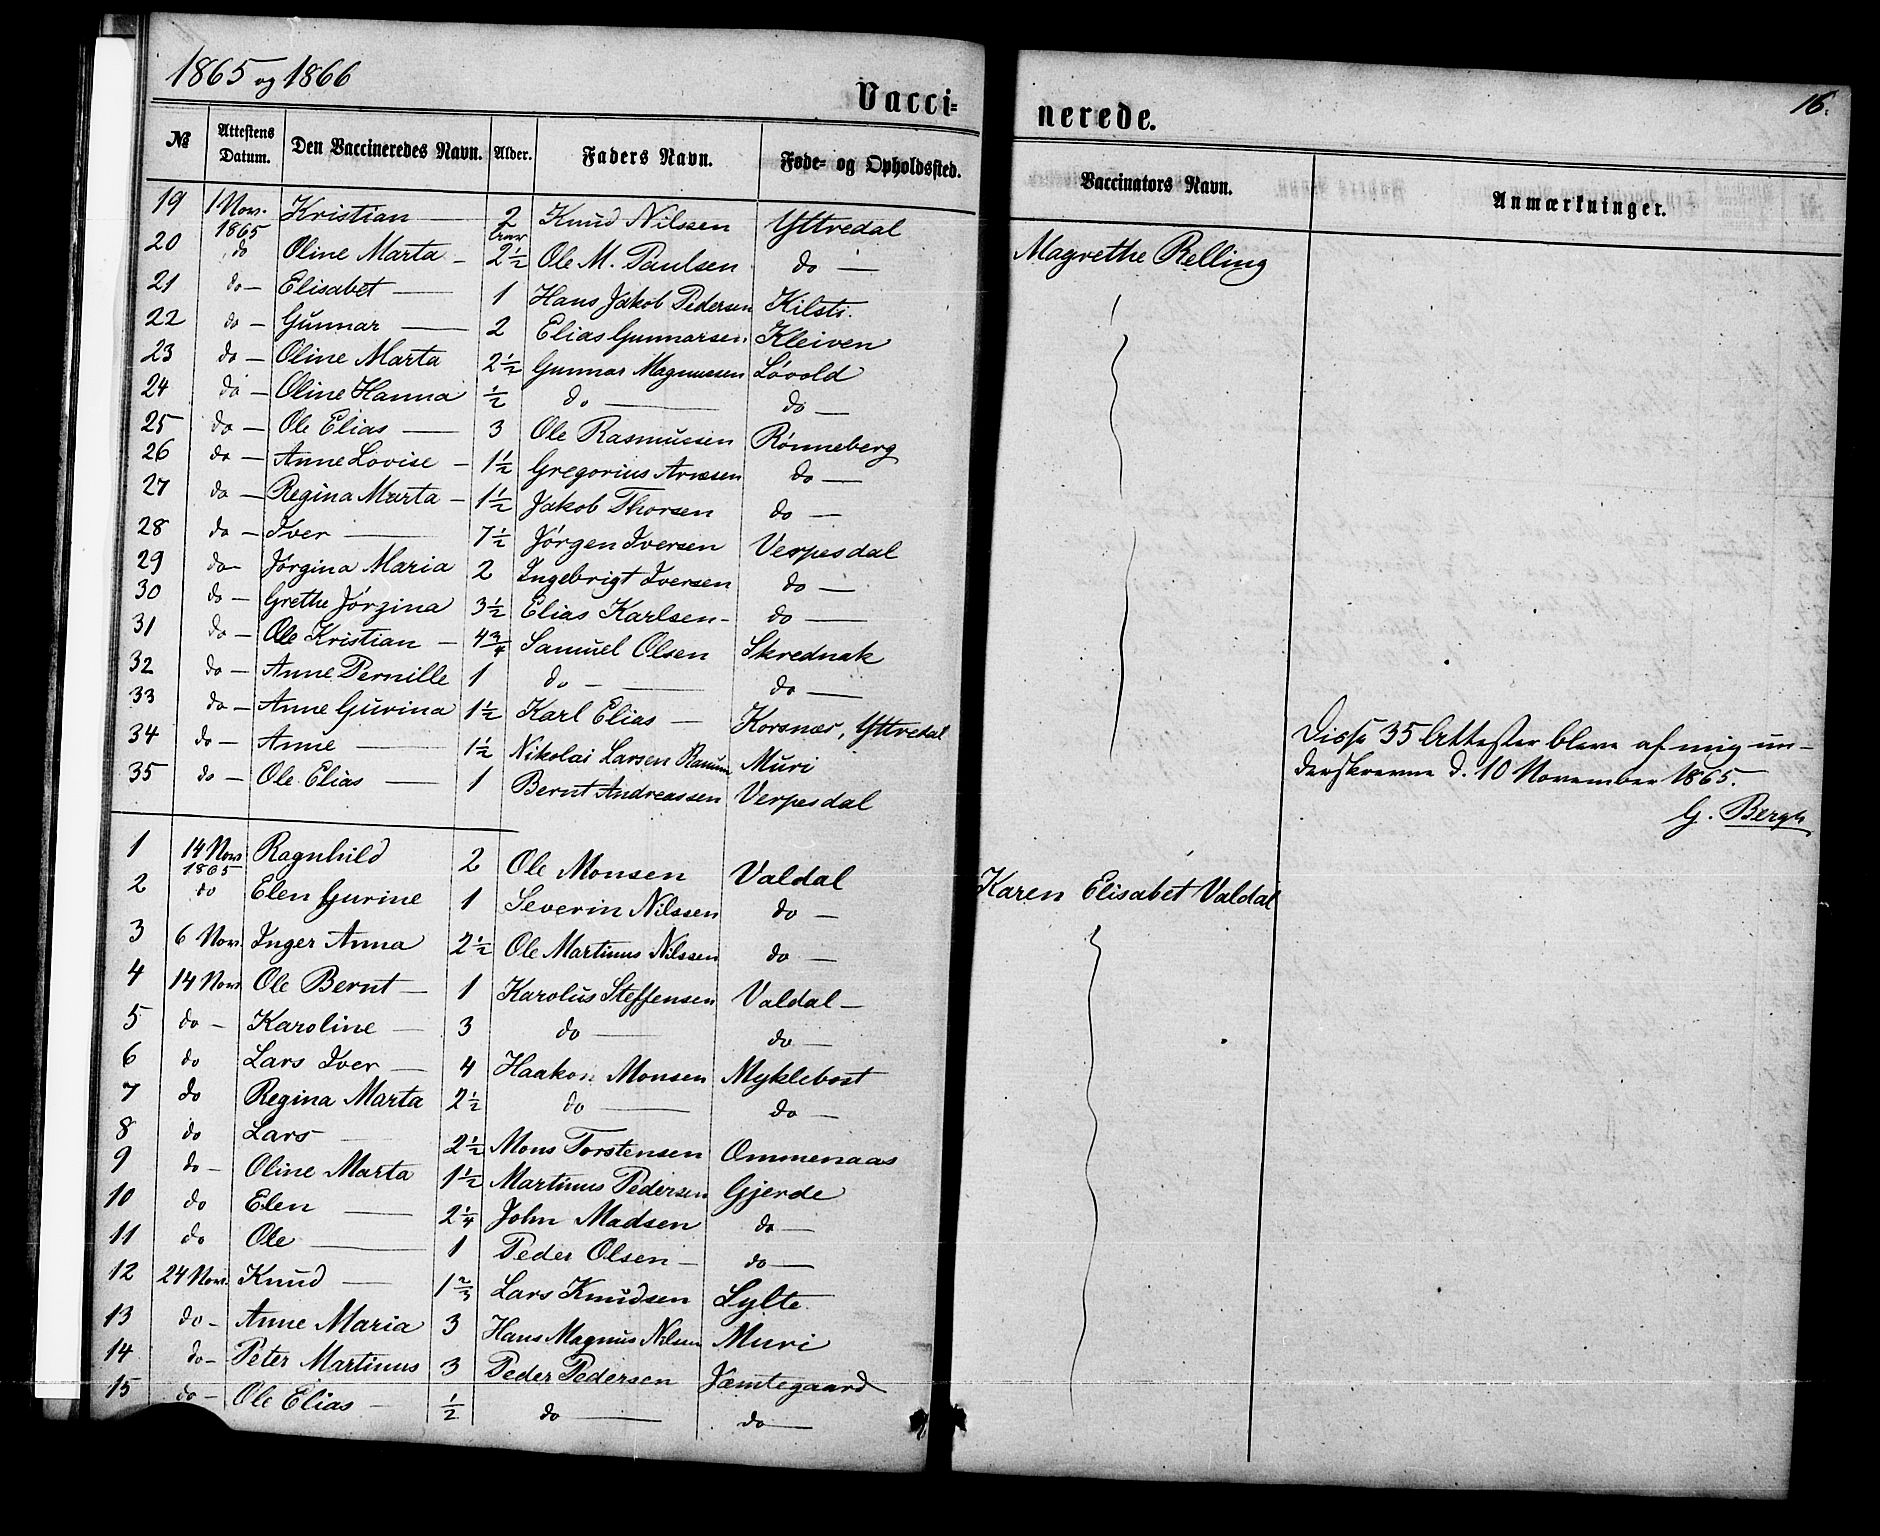 1865 og 1866
Vacci-
№ Attestens Datum. Den Vaccineredes Navn. Alder. Faders Navn. Føde- og Opholdssted.
19 1 Nov. 1865 Kristian — 2 Knud Nilssen Yttredal
20 do Oline Marta – 2½ Ole M. Paulsen do —
21 do — Elisabet — 1 Hans Jakob Pedersen Kilsti.
22 do — Gunnar — 2 Elias Gunnarsen Kleiven
23 do — Oline Marta 2½ Gunnar Magnussen Løvold
24 do — Oline Hanna ½ do — do —
25 do — Ole Elias — 3 Ole Rasmussen Rønneberg
26 do — Anne Lovise – 1½ Gregorius Arnesen do —
27 do — Regina Marta – 1½ Jakob Thorsen do —
28 do — Iver — 7½ Jørgen Iversen Verpesdal
29 do — Jørgina Maria 2 Ingebrigt Iversen do —
30 do — Grethe Jørgina 3½ Elias Karlsen – do —
31 do — Ole Kristian – 4¾ Samuel Olsen Skrednak
32 do — Anne Pernille 1 do — do —
33 do — Anne Gurina 1½ Karl Elias — Korsnær, Yttredal
34 do — Anne — 1½ Nikolai Larsen Muri
35 do — Ole Elias — 1 Bernt Andreassen Verpesdal
1 14 Nov 1865 Ragnhild 2 Ole Monsen Valdal
2 do Elen Gurine 1 Severin Nilssen do —
3 6 Nov. Inger Anna 2½ Ole Martinus Nilssen do —
4 14 Nov Ole Bernt — 1 Karolus Steffensen Valdal —
5 do – Karoline — 3 do — do —
6 do Lars Iver — 4 Haakon Monsen Myklebost
7 do Regina Marta 2½ do — do —
8 do Lars — 2½ Mons Torstensen Ommenaas
9 do – Oline Marta 1½ Martinus Pedersen Gjerde
10 do Elen — 2¼ John Madsen do —
11 do Ole — 1 Peder Olsen – do —
12 24 Nov. Knud — 1⅔ Lars Knudsen Sylte
13 do – Anne Maria 3 Hans Magnus Nilsen Muri
14 do – Peter Martinus 3 Peder Pedersen Jæmtegaard
15 do – Ole Elias – ½ do — do —
16.
nerede.
Vaccinators Navn. Anmærkninger.
Magrethe Relling
Disse 35 Attester bleve af mig un-
derskrevne d. 10 November 1865.
G. Bergh
Karen Elisabet Valdal